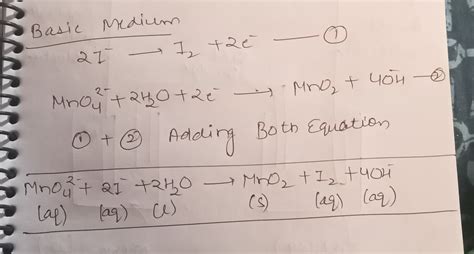 Basic Medium
2I⁻ → I₂ + 2e⁻ — ①
MnO₄²⁻ + 2H₂O + 2e⁻ → MnO₂ + 4OH⁻ — ②
① + ② Adding Both Equation
MnO₄²⁻ + 2I⁻ + 2H₂O → MnO₂ + I₂ + 4OH⁻
(aq) (aq) (l) (s) (aq) (aq)